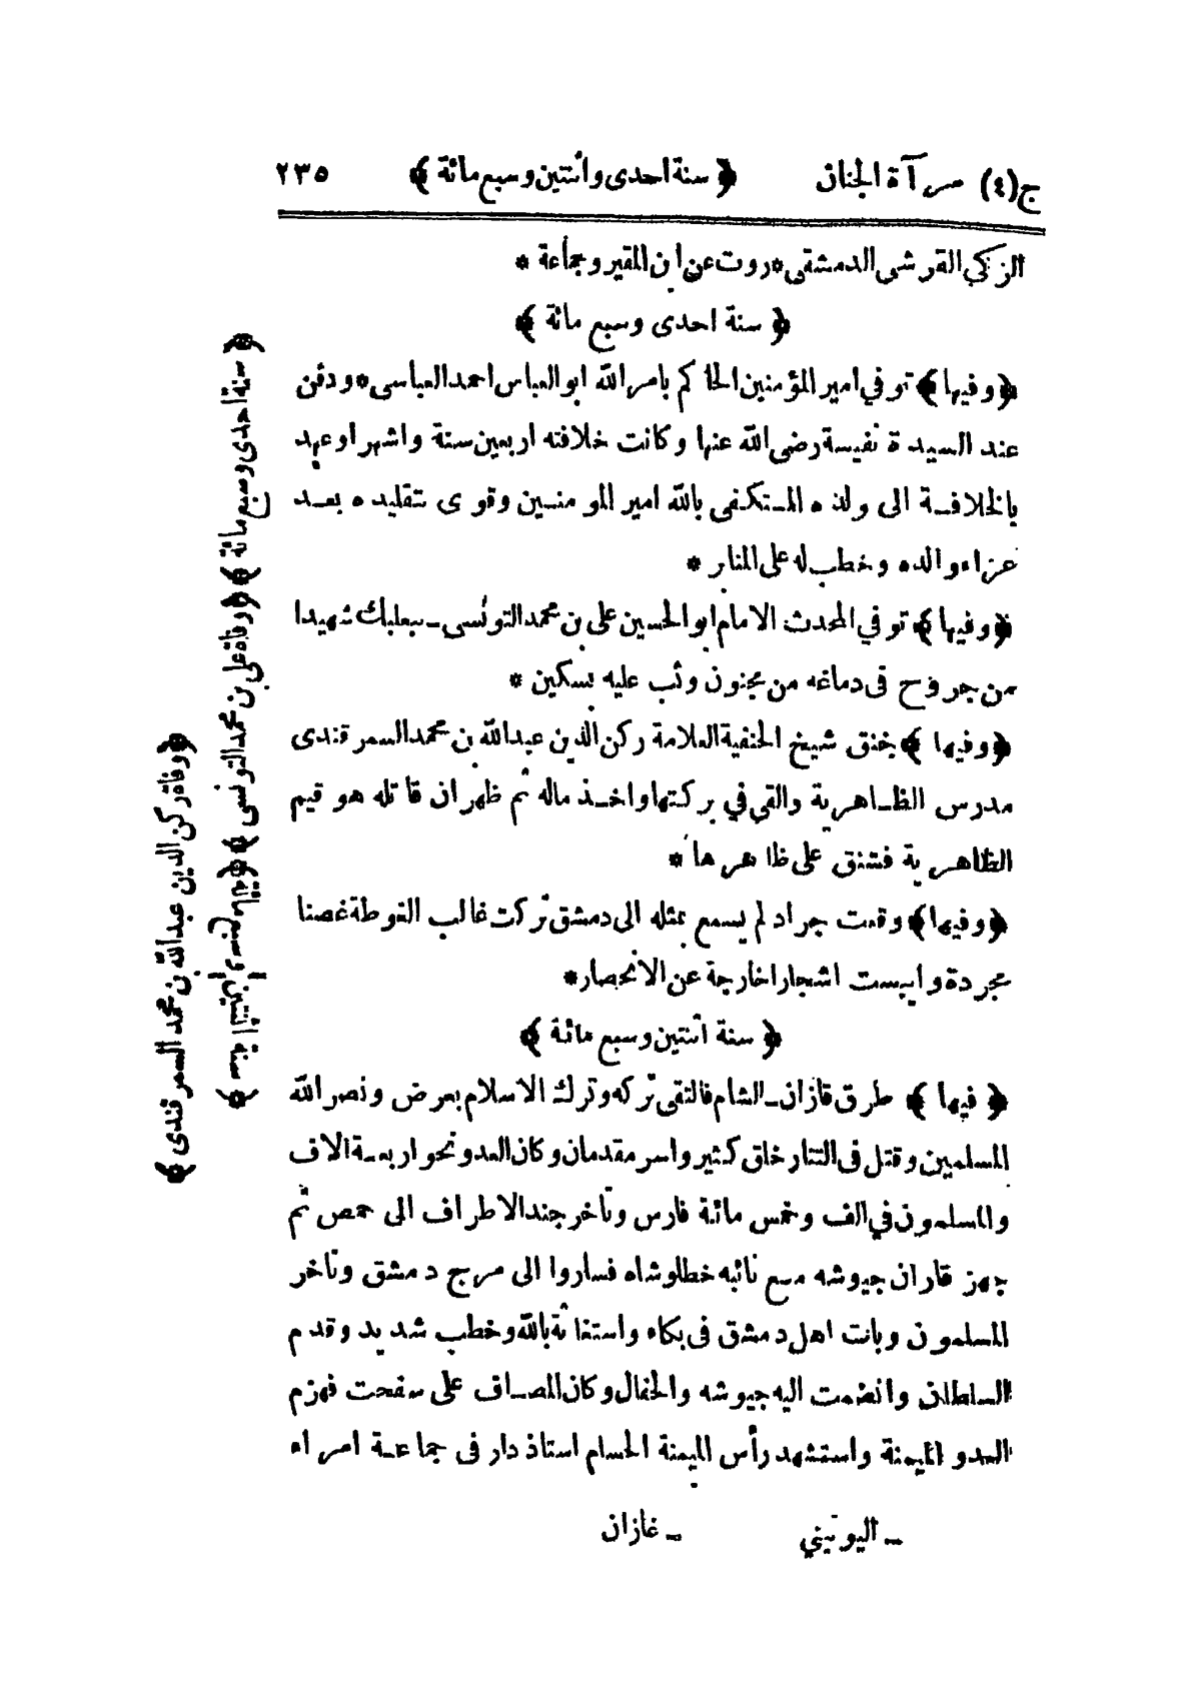 ج(٤) مرآة الجنان ﴿ سنة احدى واثنتين وسبع مائة ﴾ ٢٣٥
الزكي القرشى الدمشقى * روت عن ابن المقير وجماعة *
﴿ سنة احدى وسبع مائة ﴾
﴿ وفيها ﴾ توفي امير المؤمنين الحاكم بامر الله ابو العباس احمد العباسى * ودفن
عند السيدة نفيسة رضى الله عنها وكانت خلافته اربعين سنة واشهرا وعهد
بالخلافة الى ولده المستكفى بالله امير المومنين وقوى تقليده بعد
عزاء والده وخطب له على المنابر *
﴿ وفيها ﴾ توفي المحدث الامام ابو الحسين على بن محمد التونسى ـ ببعلبك شهيدا
من جروح فى دماغه من مجنون وثب عليه بسكين *
﴿ وفيها ﴾ خنق شيخ الحنفية العلامة ركن الدين عبدالله بن محمد السمرقندى
مدرس الظاهرية والقي في بركتها واخذ ماله ثم ظهر ان قاتله هو قيم
الظاهرية فشنق على ظاهرها *
﴿ وفيها ﴾ وقعت جراد لم يسمع بمثله الى دمشق تركت غالب الغوطة غصنا
مجردة وايبست اشجارا خارجة عن الانحصار *
﴿ سنة اثنتين وسبع مائة ﴾
﴿ فيها ﴾ طرق قازان ـ الشام فالتقى تركه وترك الاسلام بعرض ونصر الله
المسلمين وقتل فى التتار خلق كثير واسر مقدمان وكان العدو نحو اربعة الاف
والمسلمون في الف وخمس مائة فارس وتاخر جند الاطراف الى حمص ثم
جهز قازان جيوشه مع نائبه خطلوشاه فساروا الى مرج دمشق وتاخر
المسلمون وبات اهل دمشق فى بكاء واستغاثة بالله وخطب شديد وقدم
السلطان وانضمت اليه جيوشه والحفال وكان المصاف على سفحت فهزم
العدو الميمنة واستشهد رأس الميمنة الحسام استاذ دار فى جماعة امراء
ـ اليونيني ـ غازان
﴿ سنة احدى وسبع مائة ﴾ ﴿ وفاة على بن محمد التونسى ﴾
﴿ وفاة ركن الدين عبدالله بن محمد السمرقندى ﴾